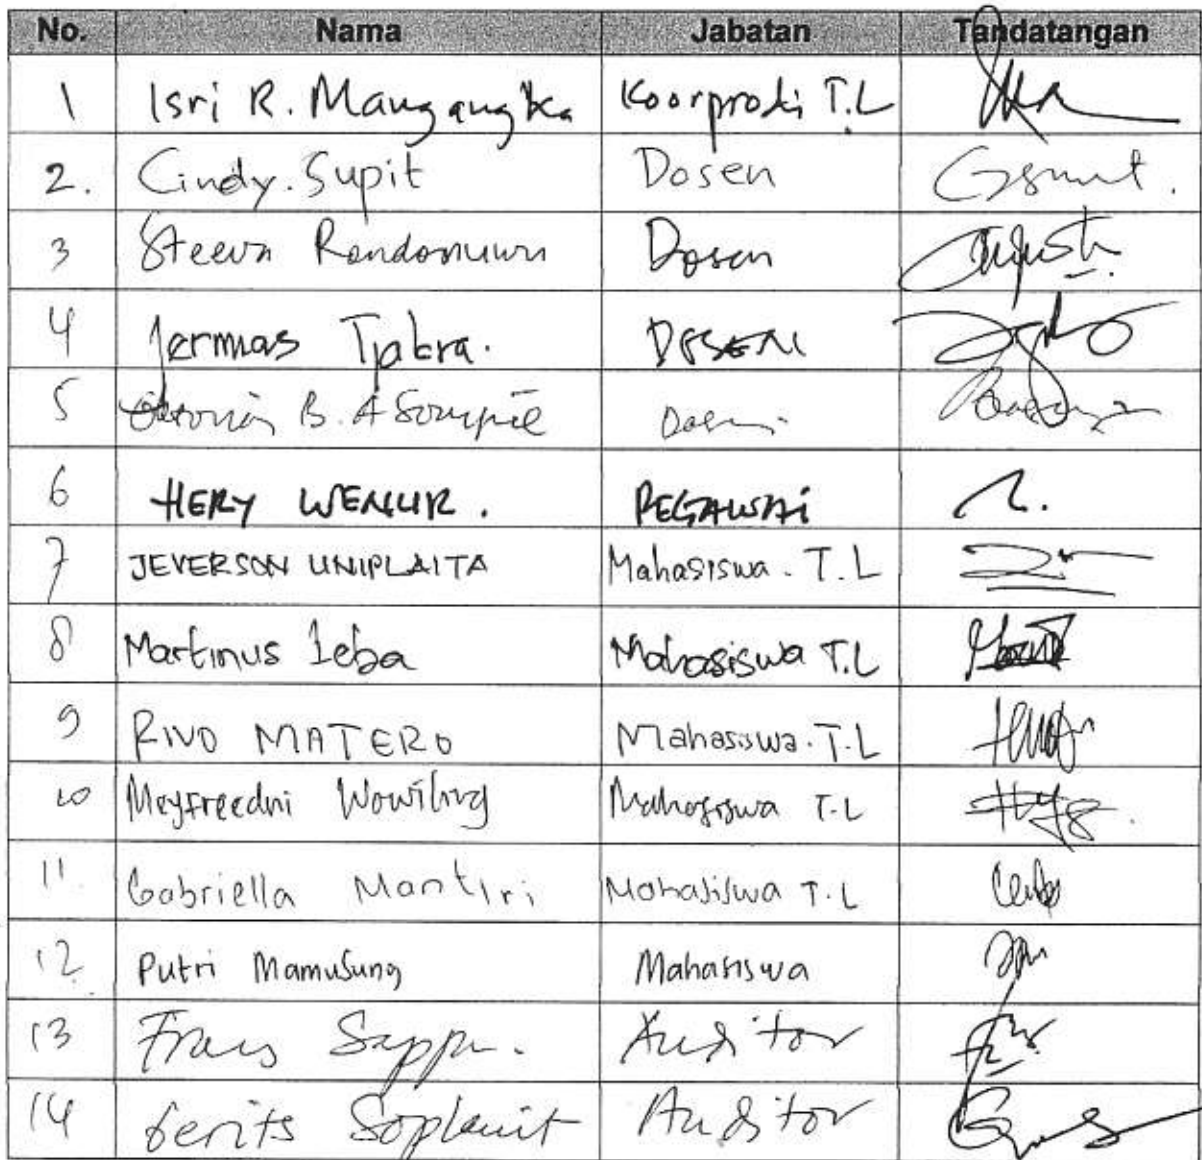 No. Nama Jabatan Tandatangan
1 Isri R. Mangangka Koorprodi T.L
2. Cindy. Supit Dosen
3 Steeva Rondonuwu Dosen
4 Jermias Tjakra. DOSEN
5 B. A Sompie Dosen
6 HERY WENUR. PEGAWAI
7 JEVERSON UNIPLAITA Mahasiswa. T.L
8 Martinus Leba Mahasiswa T.L
9 RIVO MATERO Mahasiswa. T.L
10 Meyfreedni Wowiling Mahasiswa T.L
11. Gabriella Mantiri Mahasiswa T.L
12 Putri Mamusung Mahasiswa
13 Frans Auditor
14 Gerits Soplanit Auditor